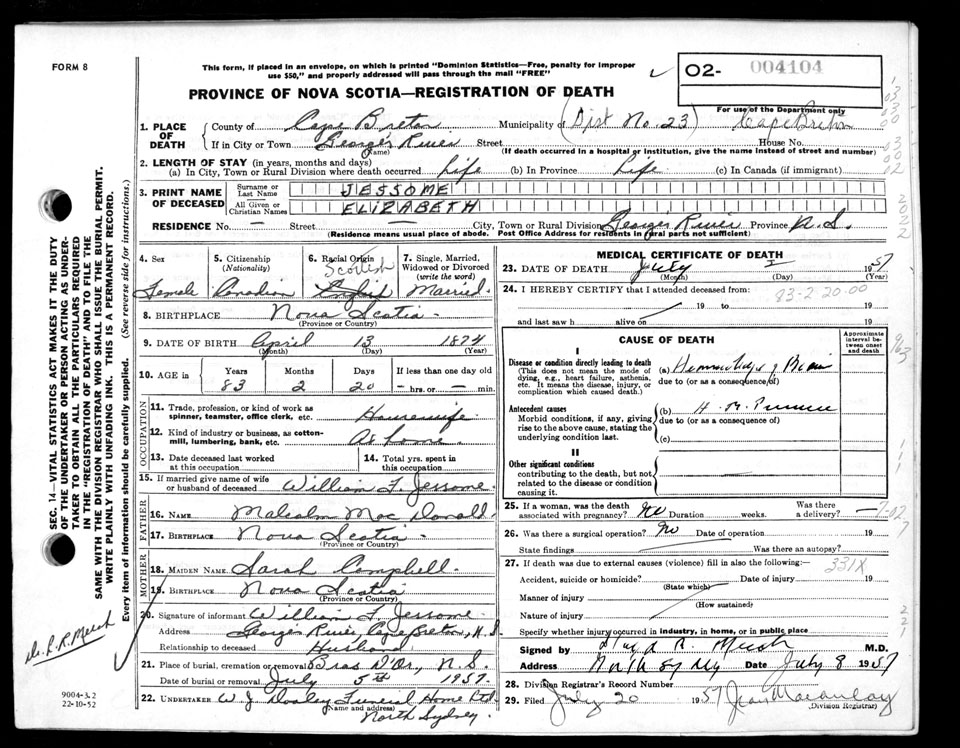 FORM 8
This form, if placed in an envelope, on which is printed "Dominion Statistics—Free, penalty for improper
use $50," and properly addressed will pass through the mail "FREE"
02- 004104
PROVINCE OF NOVA SCOTIA—REGISTRATION OF DEATH
For use of the Department only
1. PLACE OF DEATH County of Cape Breton Municipality of (Dist No. 23) Cape Breton
If in City or Town Georges River Street House No.
(Name) (If death occurred in a hospital or institution, give the name instead of street and number)
2. LENGTH OF STAY (in years, months and days)
(a) In City, Town or Rural Division where death occurred Life (b) In Province Life (c) In Canada (if immigrant)
3. PRINT NAME OF DECEASED Surname or Last Name JESSOME
All Given or Christian Names ELIZABETH
RESIDENCE No. — Street — City, Town or Rural Division Georges River Province N.S.
(Residence means usual place of abode. Post Office Address for residents in rural parts not sufficient)
4. Sex Female
5. Citizenship (Nationality) Canadian
6. Racial Origin Scottish English
7. Single, Married, Widowed or Divorced (write the word) Married
8. BIRTHPLACE Nova Scotia
(Province or Country)
9. DATE OF BIRTH April 13 1874
(Month) (Day) (Year)
10. AGE in Years Months Days If less than one day old
83 2 20 — hrs. or — min.
OCCUPATION
11. Trade, profession, or kind of work as spinner, teamster, office clerk, etc. Housewife
12. Kind of industry or business, as cotton-mill, lumbering, bank, etc. At home
13. Date deceased last worked at this occupation
14. Total yrs. spent in this occupation
15. If married give name of wife or husband of deceased William L. Jessome
FATHER
16. NAME Malcolm Mac Donald
17. BIRTHPLACE Nova Scotia
(Province or Country)
MOTHER
18. MAIDEN NAME Sarah Campbell
19. BIRTHPLACE Nova Scotia
(Province or Country)
20. Signature of informant William L. Jessome
Address Georges River, Cape Breton, N.S.
Relationship to deceased Husband
21. Place of burial, cremation or removal Bras D'Or, N.S.
Date of burial or removal July 5th 1957
22. UNDERTAKER W. J. Dooley Funeral Home Ltd
(Name and address) North Sydney
MEDICAL CERTIFICATE OF DEATH
23. DATE OF DEATH July 1957
(Month) (Day) (Year)
24. I HEREBY CERTIFY that I attended deceased from:
83-2 20-00
19 to 19
and last saw h alive on 19
CAUSE OF DEATH
Approximate interval between onset and death
I
Disease or condition directly leading to death
(This does not mean the mode of dying, e.g., heart failure, asthenia, etc. It means the disease, injury, or complication which caused death.)
(a) Hemorrhage of Brain
due to (or as a consequence of)
Antecedent causes
Morbid conditions, if any, giving rise to the above cause, stating the underlying condition last.
(b)
due to (or as a consequence of)
(c)
II
Other significant conditions
contributing to the death, but not related to the disease or condition causing it.
25. If a woman, was the death associated with pregnancy? No Duration weeks. Was there a delivery? —
26. Was there a surgical operation? No Date of operation 19
State findings Was there an autopsy?
27. If death was due to external causes (violence) fill in also the following: 331X
Accident, suicide or homicide? Date of injury 19
(State which)
Manner of injury
(How sustained)
Nature of injury
Specify whether injury occurred in industry, in home, or in public place
Signed by R. Meech M.D.
Address North Sydney Date July 8 1957
28. Division Registrar's Record Number
29. Filed July 20 1957 Jean Macaulay
(Division Registrar)
SEC. 14—VITAL STATISTICS ACT MAKES IT THE DUTY
OF THE UNDERTAKER OR PERSON ACTING AS UNDER-
TAKER TO OBTAIN ALL THE PARTICULARS REQUIRED
IN THE "REGISTRATION OF DEATH" AND TO FILE THE
SAME WITH THE DIVISION REGISTRAR WHO SHALL ISSUE THE BURIAL PERMIT.
WRITE PLAINLY WITH UNFADING INK. THIS IS A PERMANENT RECORD.
Every item of information should be carefully supplied. (See reverse side for instructions.)
Dr. L. R. Meech
9004-3.2
22-10-52